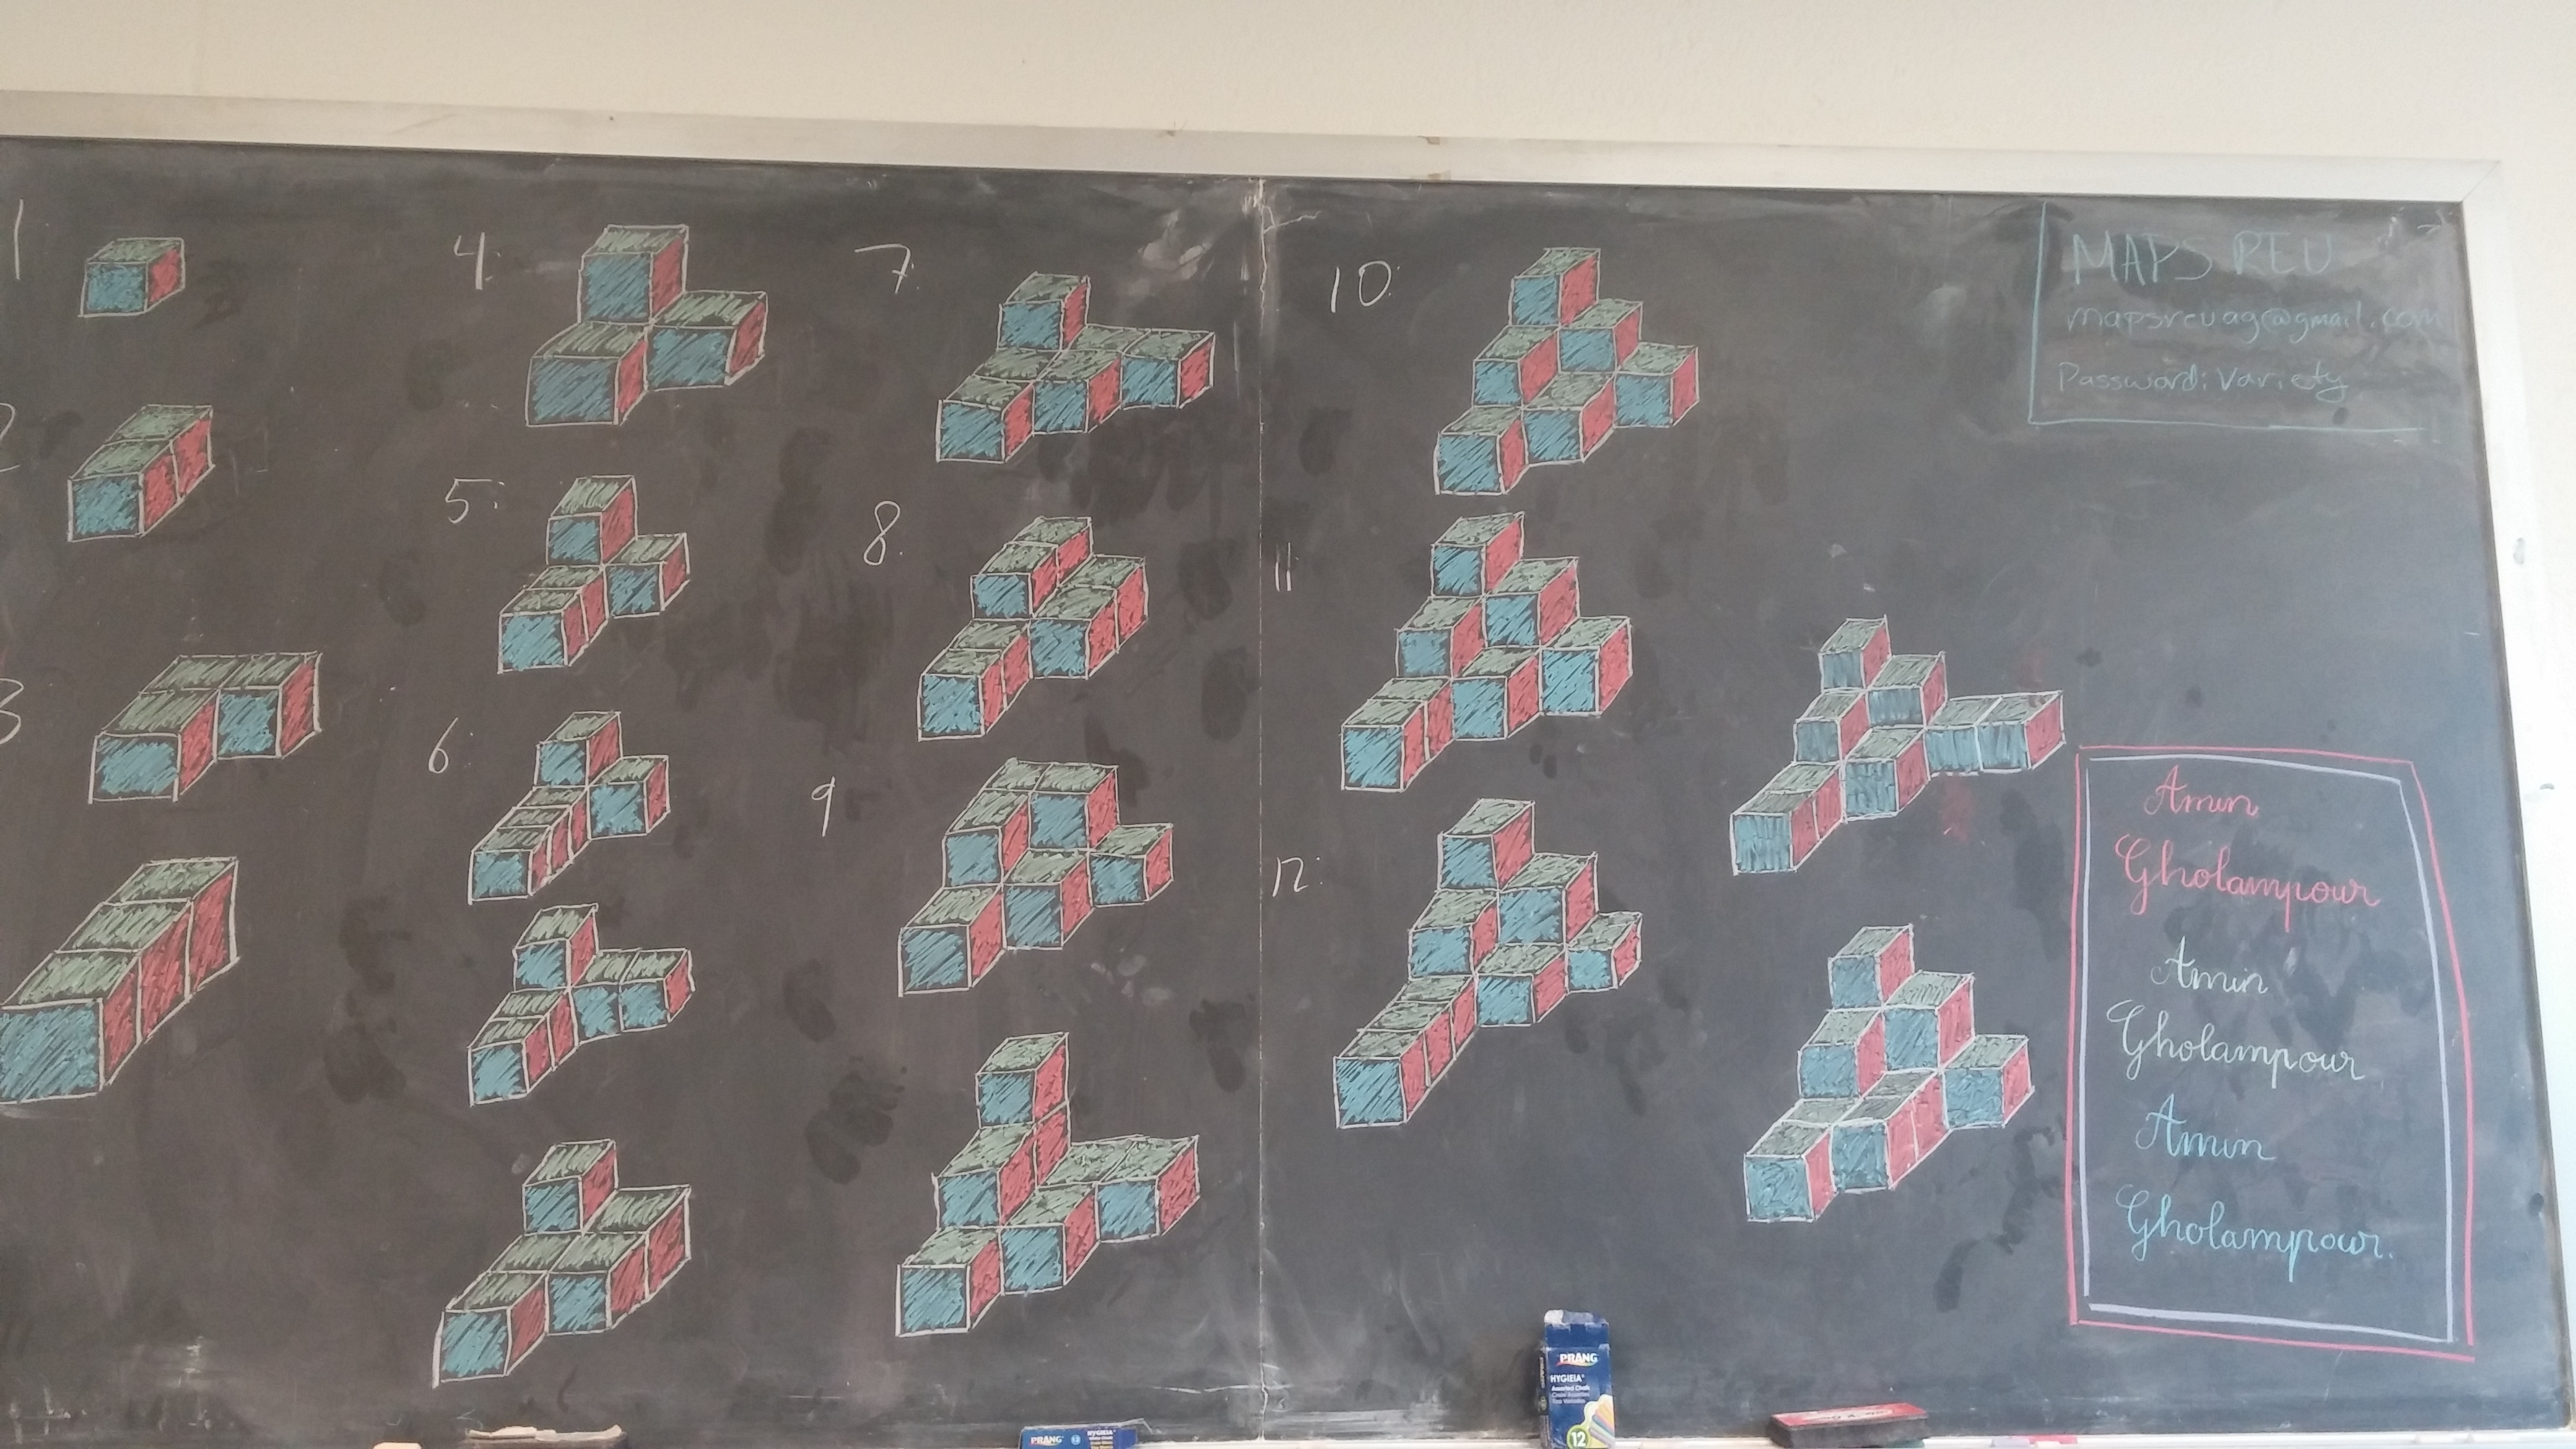 1
2
3
4:
5:
6
7.
8.
9
10:
11
12:
MAPS REU
mapsreuag@gmail.com
Password: Variety
Amin
Gholampour
Amin
Gholampour
Amin
Gholampour.
PRANG
HYGIEIA
PRANG
HYGIEIA
Assorted Chalk
12